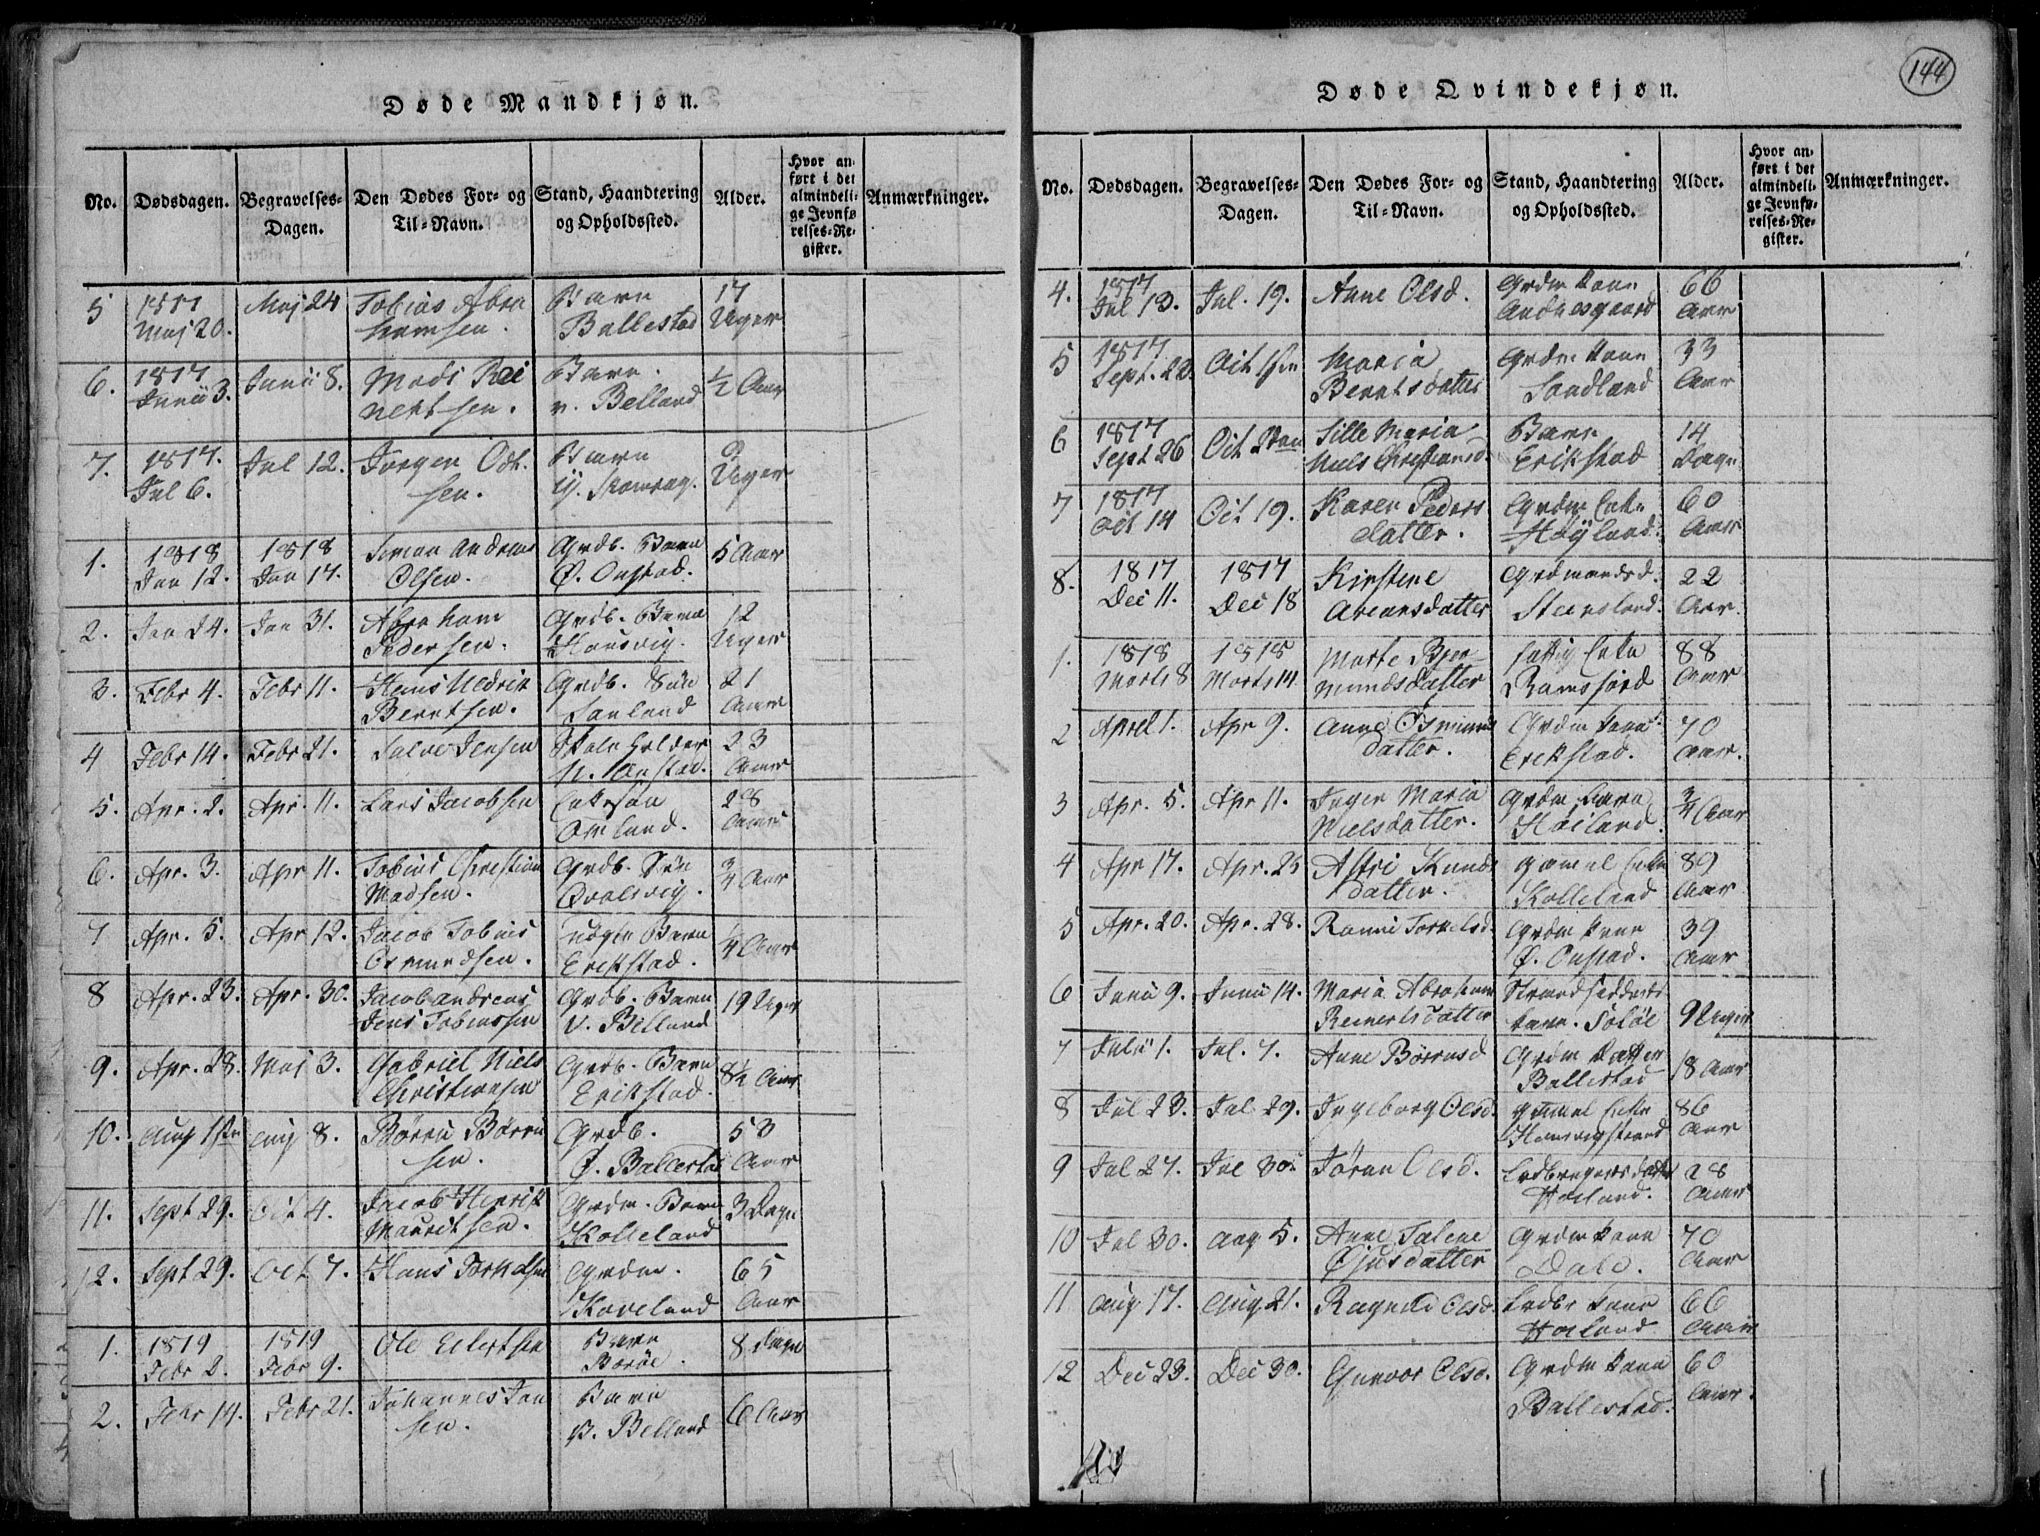 144
Døde Mandkjøn.
No. Dødsdagen. Begravelses-Dagen. Den Dødes For- og Til-Navn. Stand, Haandtering og Opholdssted. Alder. Hvor anført i det almindelige Jevnførelses-Register. Anmærkninger.
5 1817 Maj 20. Maj 24 Tobias Abra
hamsen. Barn Ballestad 17 Uger
6. 1817 Junii 3. Junii 8. Mads Rei
nertsen. Barn v. Belland ½ Aar
7. 1817. Jul 6. Jul 12. Jørgen Odt.
sen. Barn 9 Uger
1. 1818 Jan 12. 1818 Jan 17. Simon Andreas
Olsen. Grdb. Barn Ø. Onstad. 5 Aar
2. Jan 24. Jan 31. Abraham
Pedersen. Grdb. Barn Hansvig. 12 Uger
3. Febr 4. Febr 11. Hans Hedrik
Berntsen. Grdb. Søn Sanland 21 Aar
4 Febr 14. Febr 21. Salve Jensen Skoleholder N. Onstad. 23 Aar
5. Apr. 2. Apr. 11. Lars Jacobsen Omland. 28 Aar
6. Apr. 3. Apr 11. Tobias Christian
Madsen. Grdb. Søn ¾ Aar
7 Apr. 5. Apr 12. Jacob Tobias
Osmundsen. Barn Erikstad. ¼ Aar
8 Apr. 23. Apr. 30. Jacob Andreas
Jens Tobiassen Grdb. Barn V. Belland 19 Uger
9. Apr. 28. Maj 3. Gabriel Niels
Christiansen Grdb. Barn Erikstad. 8½ Aar
10. Aug 1ste Aug 8. Børru Børru
sen. Grdb. Ø. Ballestad 53 Aar
11. Sept 29. Oct 4. Jacob Henrik
Mauritsen. Grdm. Barn Kolleland 3 Dage
12. Sept 29. Oct 7. Hans Torkelsen Grdm. Koveland 65 Aar
1. 1819 Febr 2. 1819 Febr 9. Ole Eilertsen Barn Borøe. 8 Dage
2. Febr 14. Febr 21. Johannes Jan
sen. Barn V. Belland 6 Aar
Døde Qvindekjøn.
No. Dødsdagen. Begravelses-Dagen. Den Dødes For- og Til-Navn. Stand, Haandtering og Opholdssted. Alder. Hvor anført i det almindelige Jevnførelses-Register. Anmærkninger.
4. 1817 Jul 13. Jul. 19. Anne Olsd. Grdm kone 66 Aar
5 1817 Sept. 22 Oct 1ste Maria
Berntsdatter Grdm kone Sandland 33 Aar
6 1817 Sept 26 Oct 2den Sille Maria
Niels Christiansd. Barn Erikstad 14 Dage
7 1817 Oct 14 Oct 19. Karen Peders
datter. Grdm Enke Høyland. 60 Aar
8. 1817 Dec 11. 1817 Dec 18 Kirstene
Areansdatter Grdmandsd. Steensland. 22 Aar.
1. 1818 Marts 8 1818 Marts 14 Marte Bjor
mundsdatter fattig Enke Ramsfjord 88 Aar
2 April 1. Apr 9. Anne Osmunds
datter. Grdm kone Erikstad. 70 Aar.
3 Apr. 5. Apr 11. Inger Maria
Nielsdatter. Grdm Barn Høiland. ¾ Aar
4 Apr 17. Apr. 25 Astri Knuds
datter. gammel Enke Kolleland 89 Aar
5 Apr. 20. Apr. 28. Ranni Torkelsd. Grdm kone Ø. Onstad. 39 Aar
6 Junii 9. Junii 14. Maria Abraham
Reinertsdatter Strandsidders barn. Soløe 9 Uger
7 Julii 1. Jul. 7. Anne Børrusd Grdm datter Ballestad 18 Aar
8 Jul 23. Jul 29. Ingeborg Olsd. gammel Enke Hansvigstrand 86 Aar
9 Jul 27. Jul 30. Jøran Olsd. Ledbrugers datter Høiland. 28 Aar
10 Jul 30. Aug 5. Anne Talene
Øjusdatter Grdm kone Dale. 70 Aar
11 Aug 17. Aug 21. Ragnild Olsd. kone Høiland 66 Aar
12 Dec 23. Dec 30. Gunvor Olsd. Grdm kone Ballestad. 60 Aar.